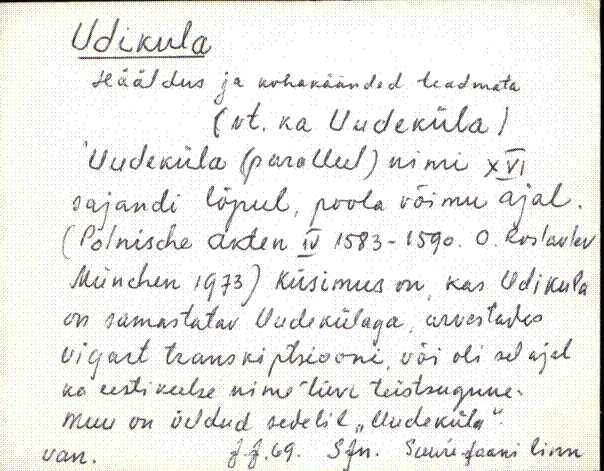 Udikula
Hääldus ja kohakäänded teadmata
(vt. ka Uudeküla)
Uudeküla (paralleel) nimi XVI
sajandi lõpul, poola võimu ajal.
(Polnische Akten IV 1583-1590. O. Roslavlev
München 1973) Küsimus on, kas Udikula
on samastatav Uudekülaga, arvestades
vigast transkiptsiooni, või oli sel ajal
ka eestikeelse nime tüvi teistsugune.
Muu on üeldud sedelil „Uudeküla"
van. J.J.69. SJn. Suure-Jaani linn